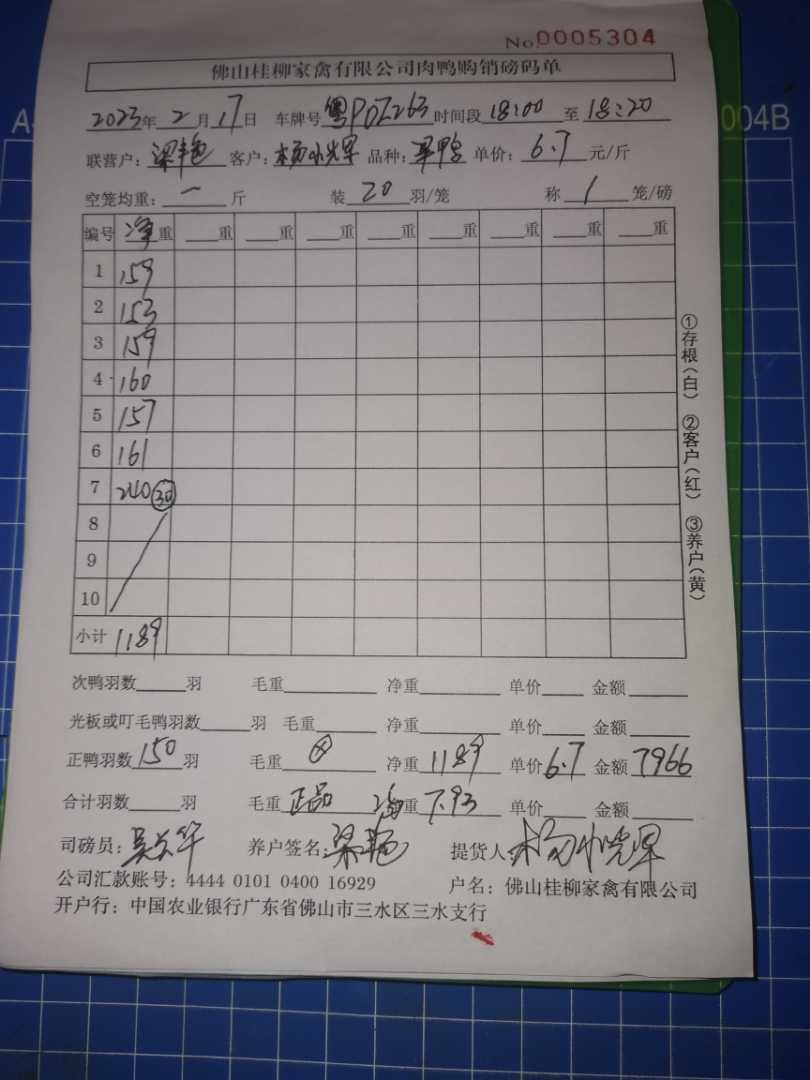 No.0005304
佛山桂柳家禽有限公司肉鸭购销磅码单
2023年 2 月 17 日 车牌号 粤P0Z263 时间段 18:00 至 18:20
联营户: 梁艳 客户: 杨小晃军 品种: 单价: 6.7 元/斤
空笼均重: 一 斤 装 20 羽/笼 称 1 笼/磅
编号 净重 重 重 重 重 重 重 重 重
1 159
2 153
3 159
4 160
5 157
6 161
7 240 30
8
9
10
小计 1189
次鸭羽数 羽 毛重 净重 单价 金额
光板或叮毛鸭羽数 羽 毛重 净重 单价 金额
正鸭羽数 150 羽 毛重 净重 1189 单价 6.7 金额 7966
合计羽数 羽 毛重 正品 均重 7.93 单价 金额
司磅员: 吴 华 养户签名: 梁艳 提货人
公司汇款账号: 4444 0101 0400 16929 户名: 佛山桂柳家禽有限公司
开户行: 中国农业银行广东省佛山市三水区三水支行
①存根(白) ②客户(红) ③养户(黄)
A
004B